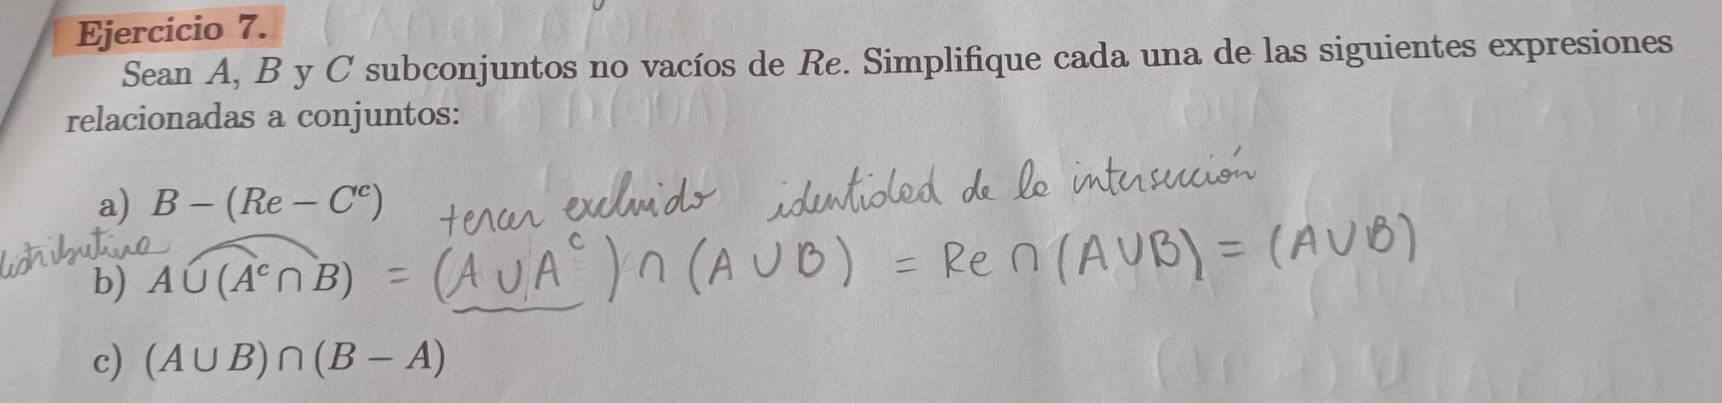 Ejercicio 7.
Sean A, B y C subconjuntos no vacíos de Re. Simplifique cada una de las siguientes expresiones
relacionadas a conjuntos:
a) B − (Re − Cᶜ)
tercer excluido identidad de la intersección
distributiva
b) A ∪ (Aᶜ ∩ B) = (A ∪ Aᶜ) ∩ (A ∪ B) = Re ∩ (A ∪ B) = (A ∪ B)
c) (A ∪ B) ∩ (B − A)